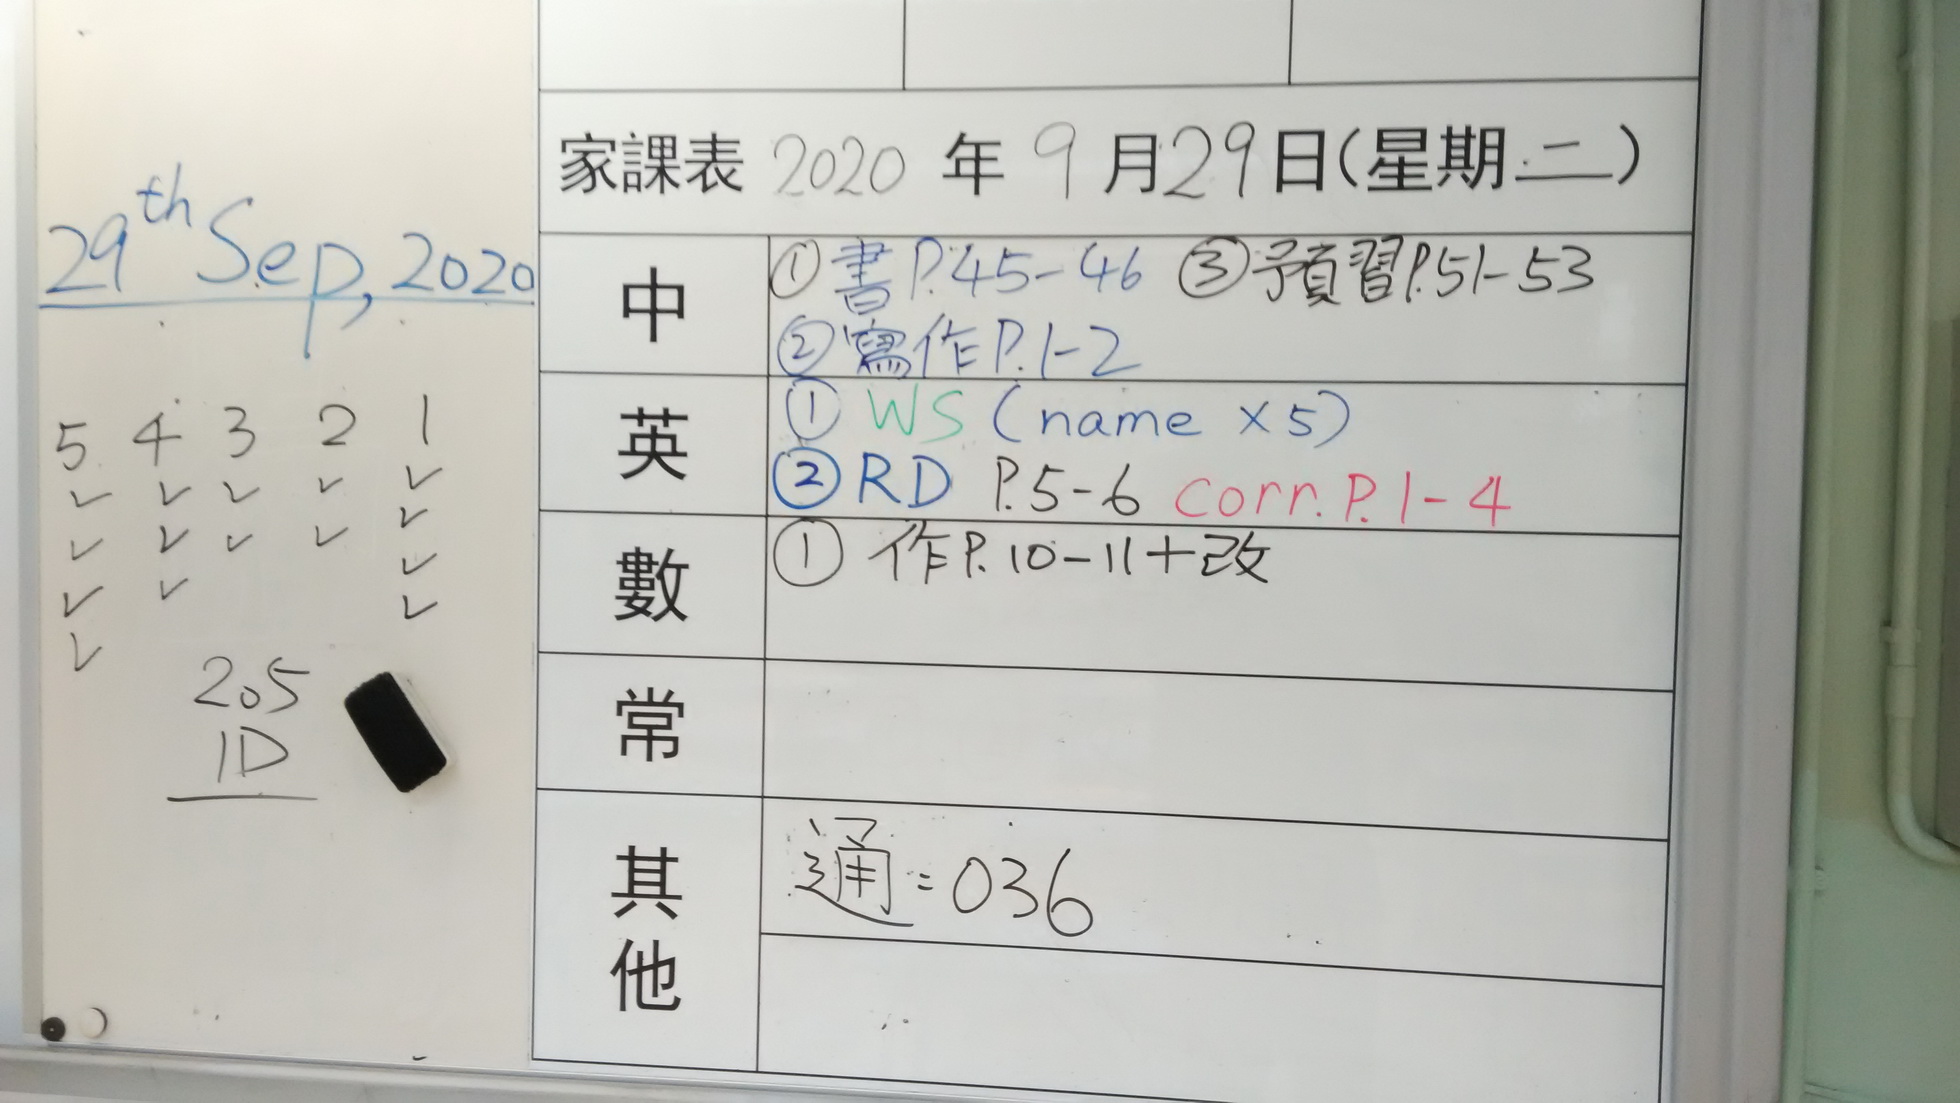 29th Sep, 2020
5 4 3 2 1
205
1D
家課表 2020 年 9 月 29 日(星期二)
中
① 書 P.45-46 ③ 預習 P.51-53
② 寫作 P.1-2
英
① WS (name x5)
② RD P.5-6 corr. P.1-4
數
① 作 P.10-11+改
常
其他
通:036